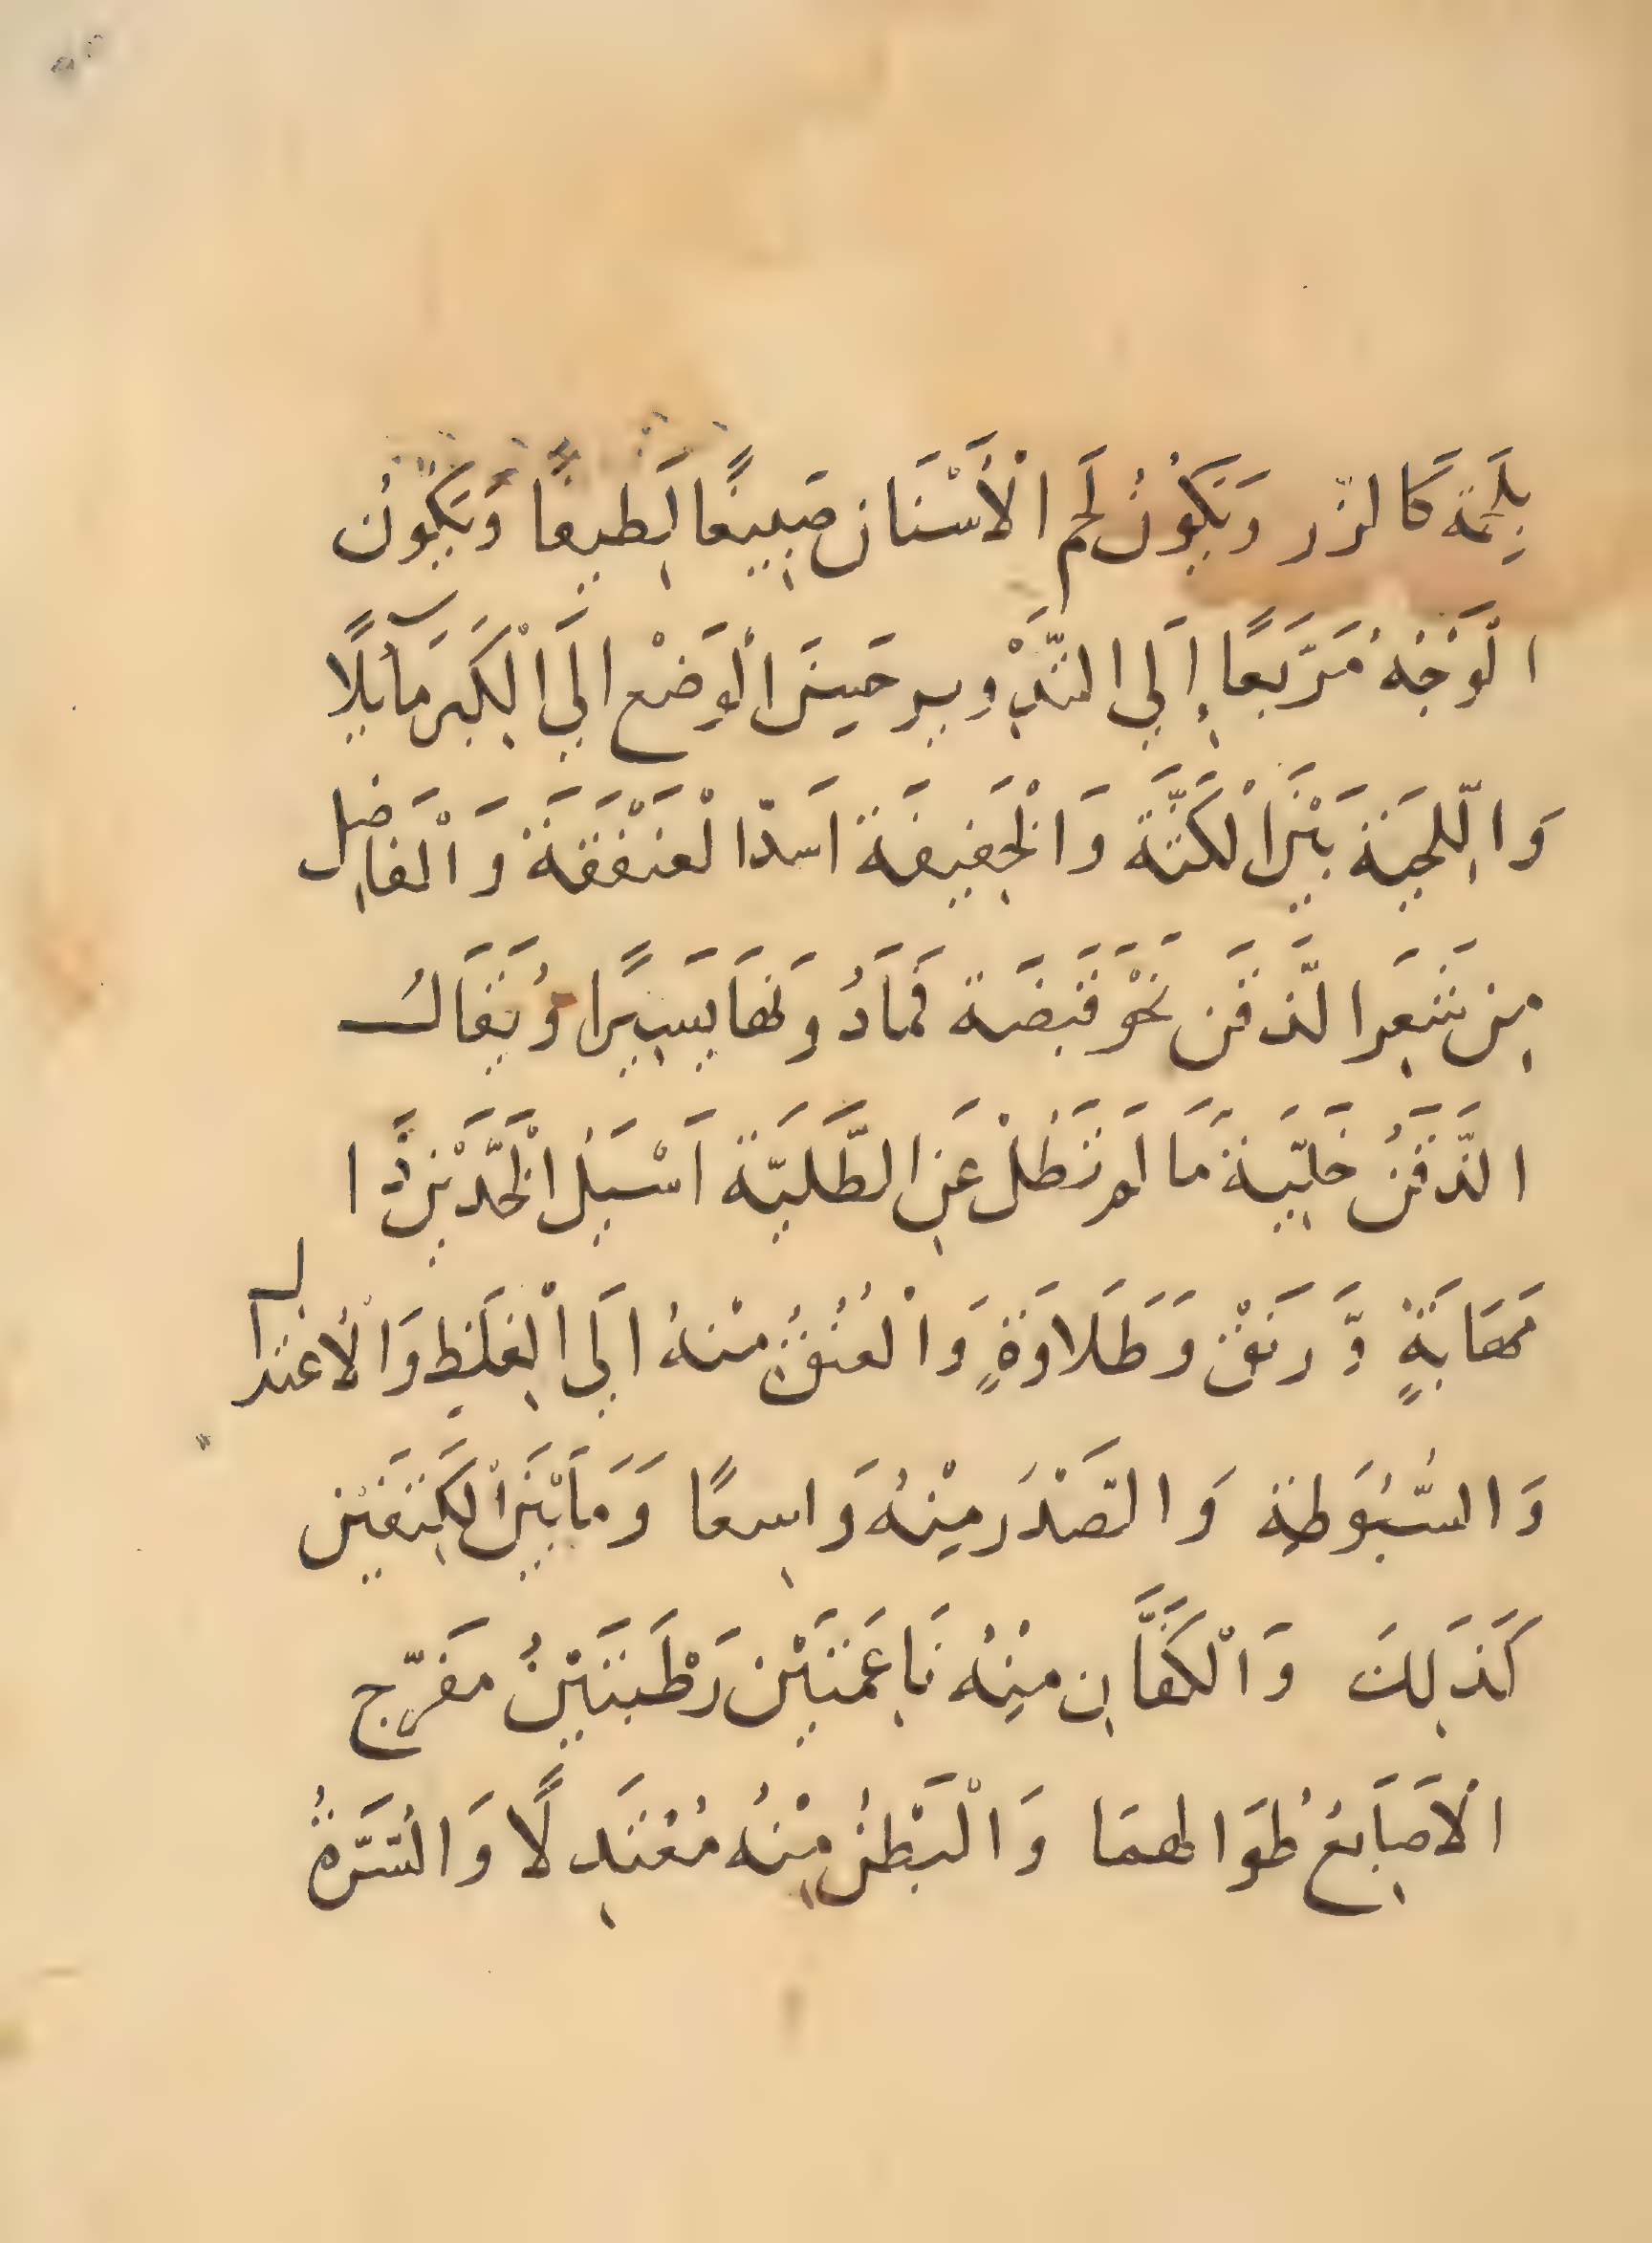 بِلَحْمَةٍ كَالزّر وَيَكُوْنُ لَحم الْأَسْنَان صَبِيغًا لَطِيفًا وَيَكُونُ
الْوَجْهُ مُرَبَّعًا إِلَي التَّدْوِيرِ حَيثَ الْوَضْع الَي الْكِبَر مَآئلًا
وَاللِّحيَة بَيْنَ الْكَثَّة وَالْخَفِيفَة اسدّ الْعَنْفَقَةَ وَالْفَاضِل
مِن شَعَرِ الذَّقَن نَحْوَ قَبَضَة فَمَادُونهَا يَسِيرًا وُيقَالُ
الذَّقَنُ حَلِيّة مَا لَم تَطُلْ عَنِ الطَّلَيّة اَسْيَلُ الْخَدَّيْنِ ذًا
مَهَابَةٍ وَّرَنَقٍ وَطَلَاوَةٍ وَالْعُنُقُ مِنْهُ الَي الْغِلَظِ وَالْاعتدال
وَالسُّبُوَطةِ وَالصَّدْرُ مِنْهُ وَاسِعًا وَمَا بَيْنَ الْكَتِفَيْن
كَذَلِكَ وَالْكَفَّانِ مِنْهُ نَاعِمَتَيْن رَطْبَتَيْنُ مفَرّج
الْاَصَابِعُ طُوَالهمَا وَالْبَطْنُ مِنْهُ مُعْتَدِلًا وَالسُّرَّةُ